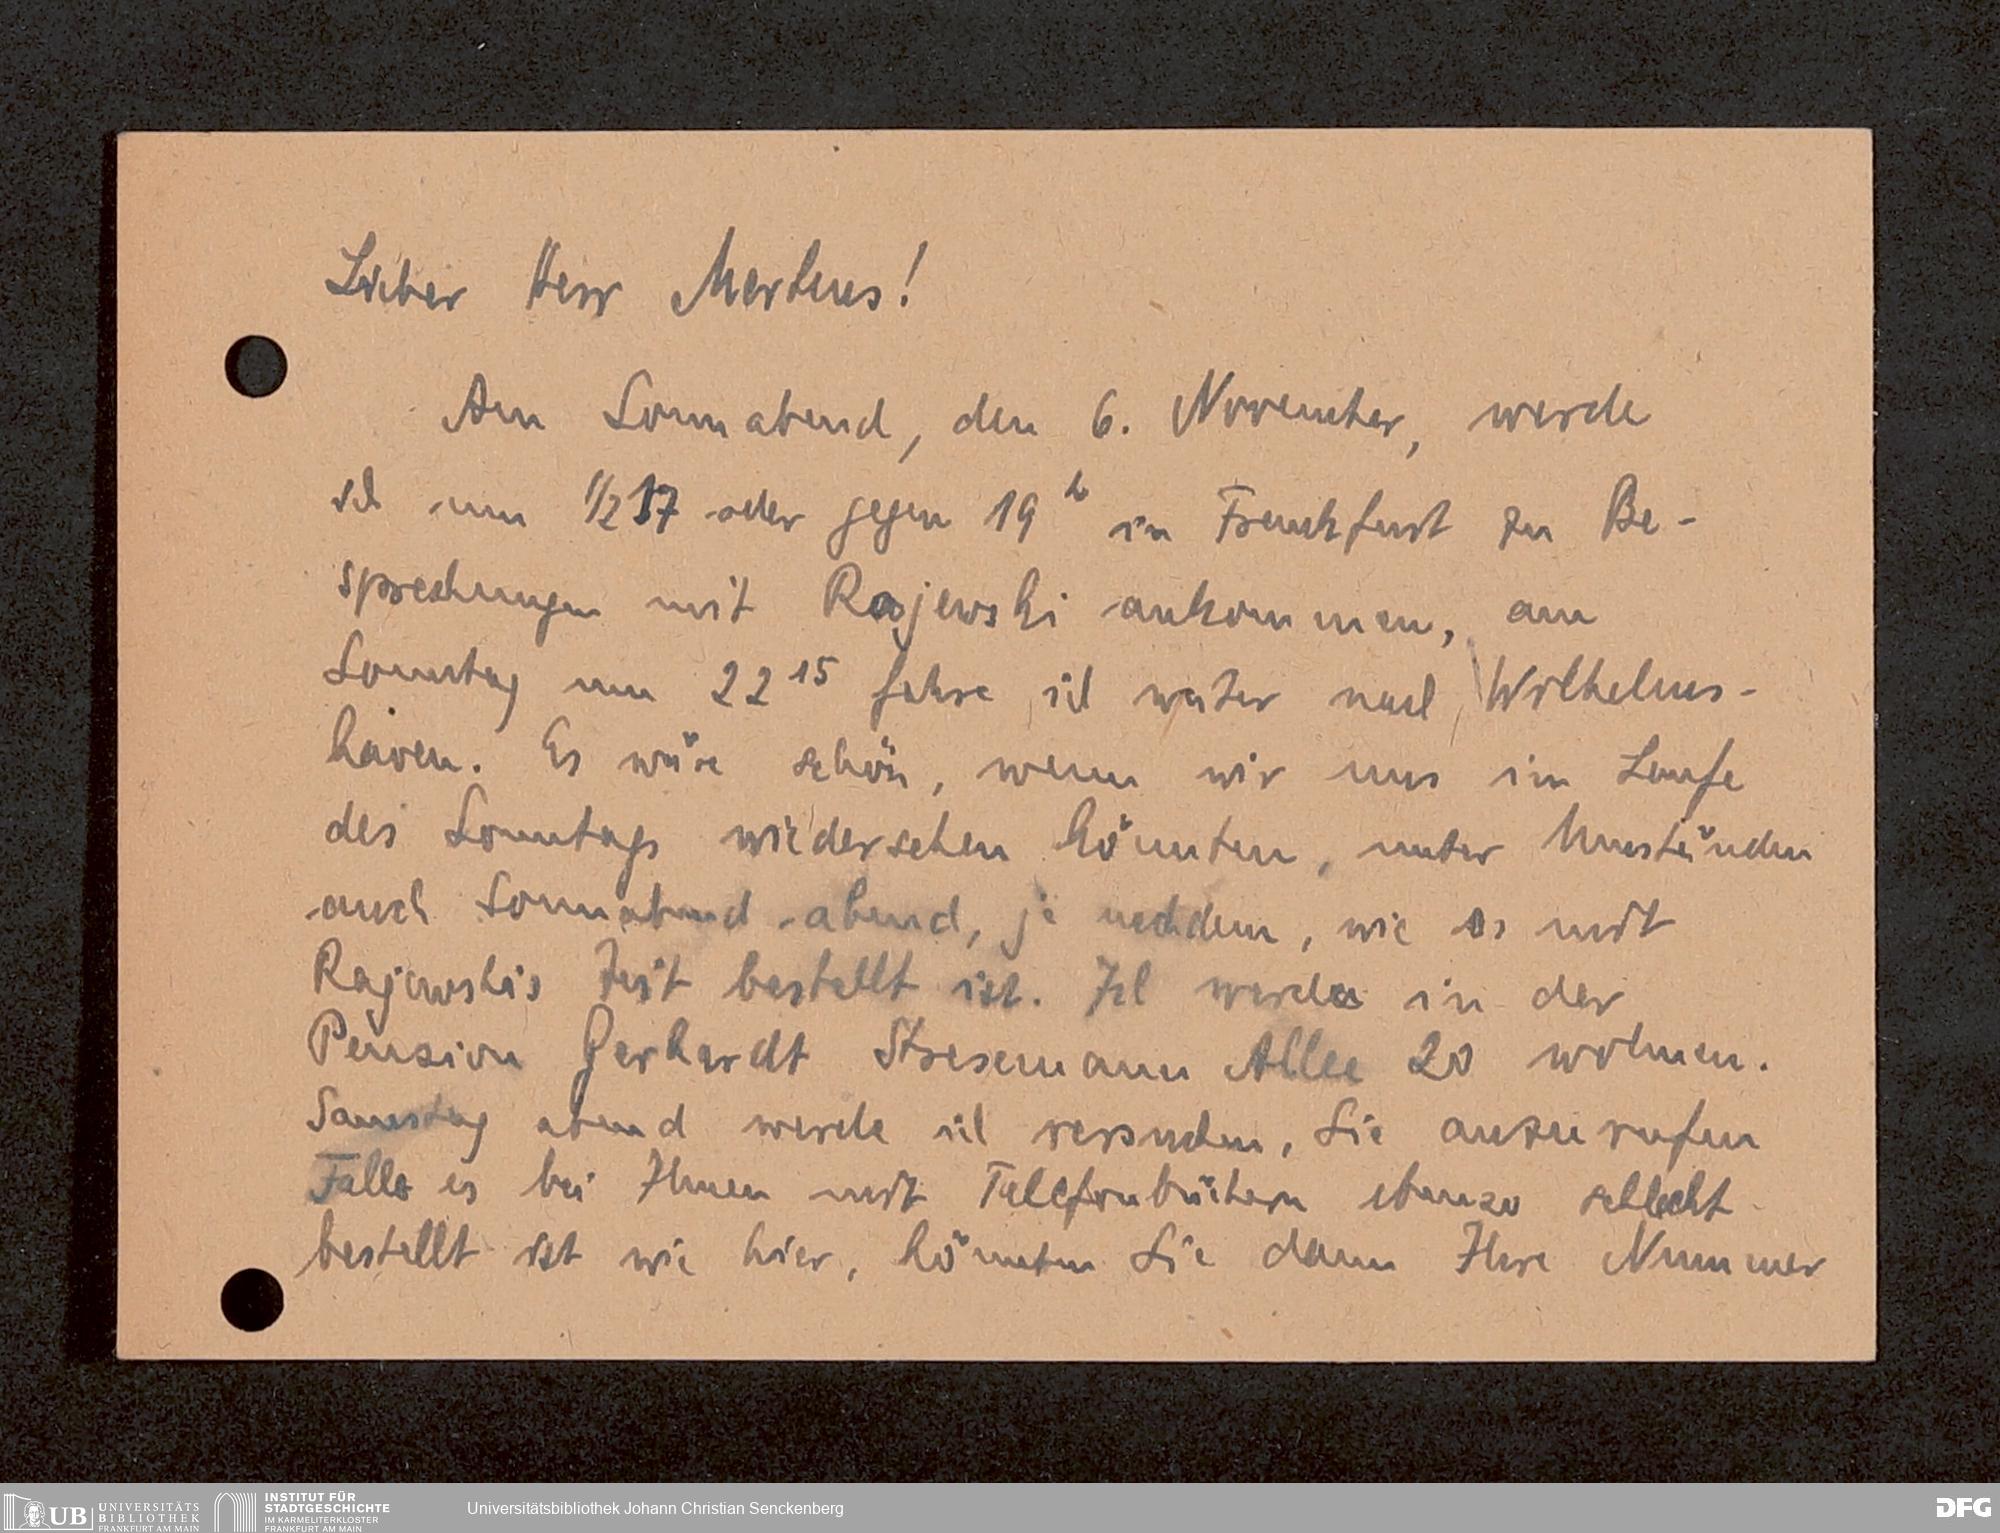 Lieber Herr Mertens!
Am Sonnabend, den 6. November, werde
ich um 1/2 17 oder gegen 19 h in Frankfurt zu Be-
sprechungen mit Rajewski ankommen, am
Sonntag um 22 15 fahre ich weiter nach Wilhelms-
haven. Es wäre schön, wenn wir uns im Laufe
des Sonntags wiedersehen könnten, unter Umständen
auch Sonnabend abend, je nachdem, wie es mit
Rajewskis Zeit bestellt ist. Ich werde in der
Pension Gerhardt Stresemann Allee 20 wohnen.
Samstag abend werde ich versuchen, Sie anzurufen
Falls es bei Ihnen mit Telefonbüchern ebenso schlecht
bestellt ist wie hier, könnten Sie dann Ihre Nummer
UB UNIVERSITÄTS
BIBLIOTHEK
FRANKFURT AM MAIN
INSTITUT FÜR
STADTGESCHICHTE
IM KARMELITERKLOSTER
FRANKFURT AM MAIN
Universitätsbibliothek Johann Christian Senckenberg
DFG